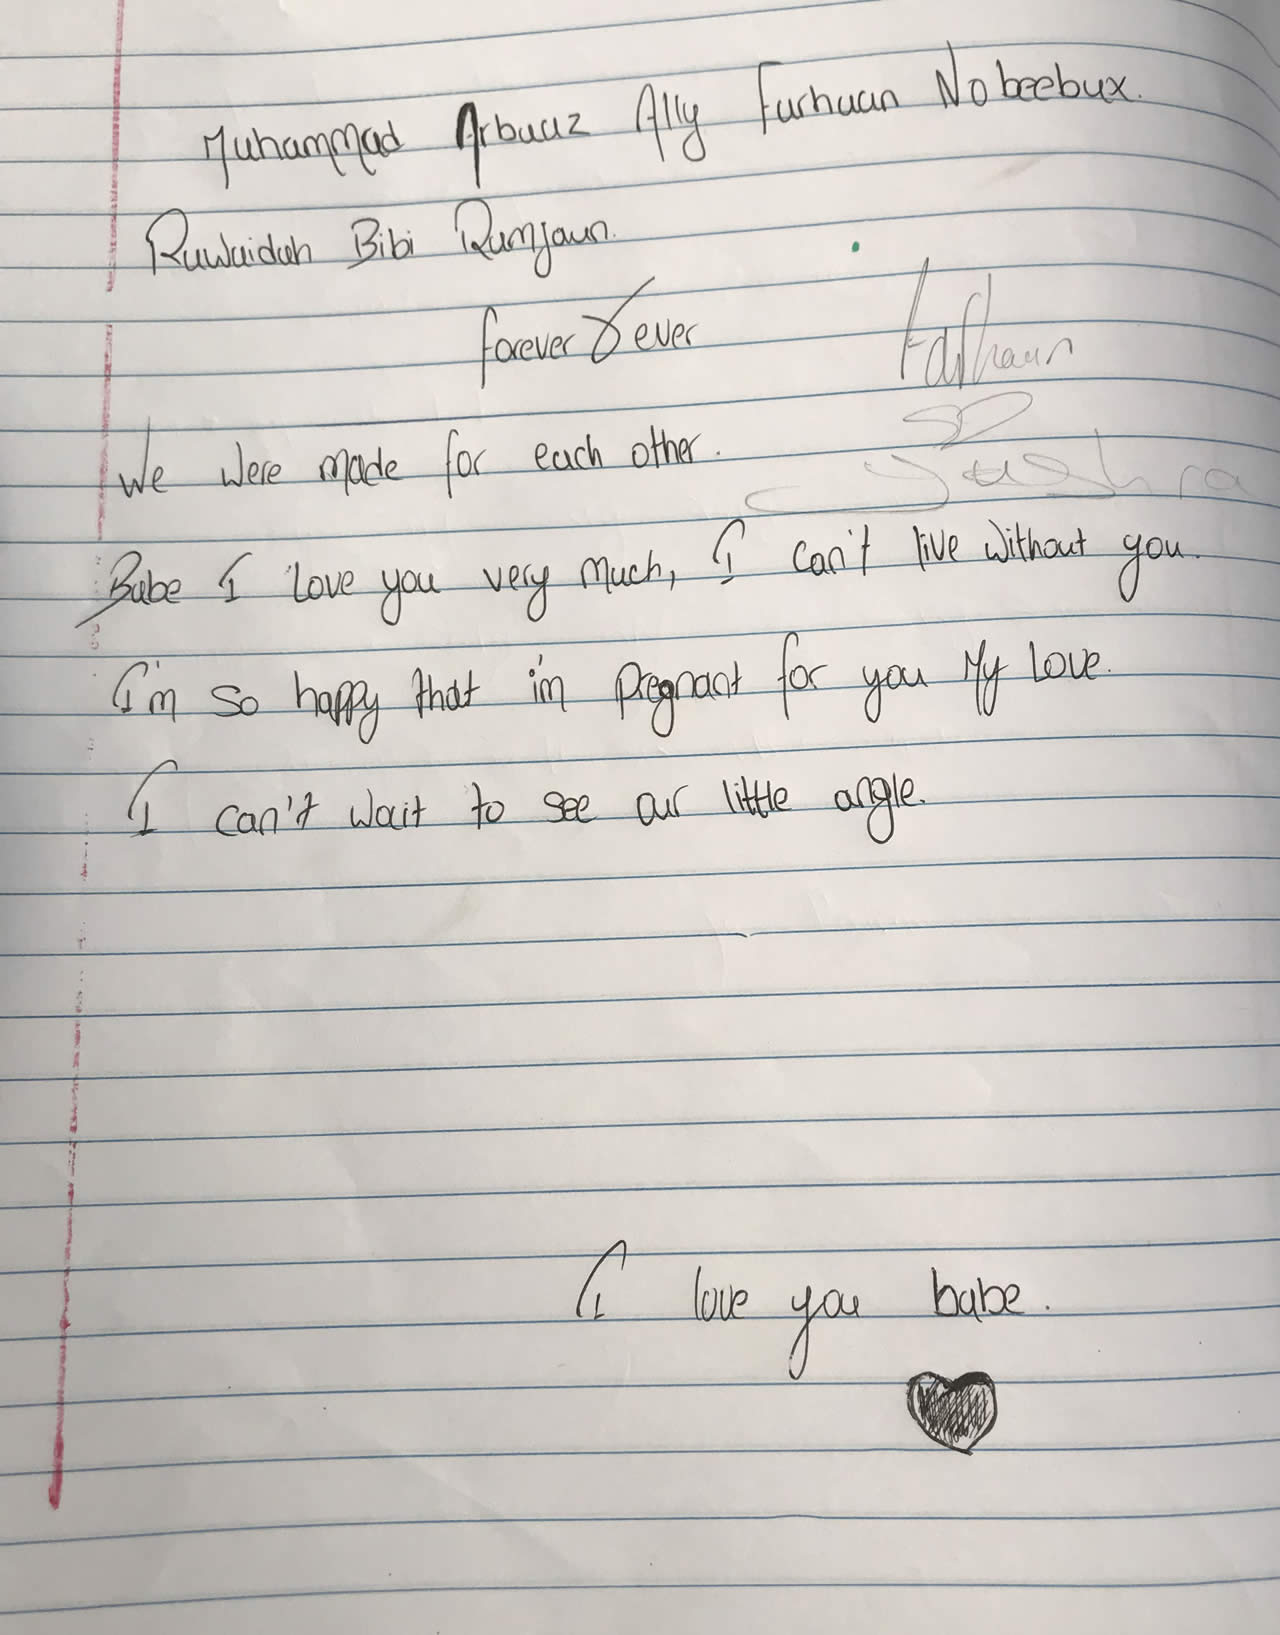 Muhammad Arbaaz Ally Farhaan Nobeebux.
Ruwaidah Bibi Ramjaun.
forever & ever
Farhaan
We were made for each other.
Yushra
Babe I love you very much, I can't live without you.
I'm so happy that i'm pregnant for you My Love.
I can't wait to see our little angle.
I love you babe.